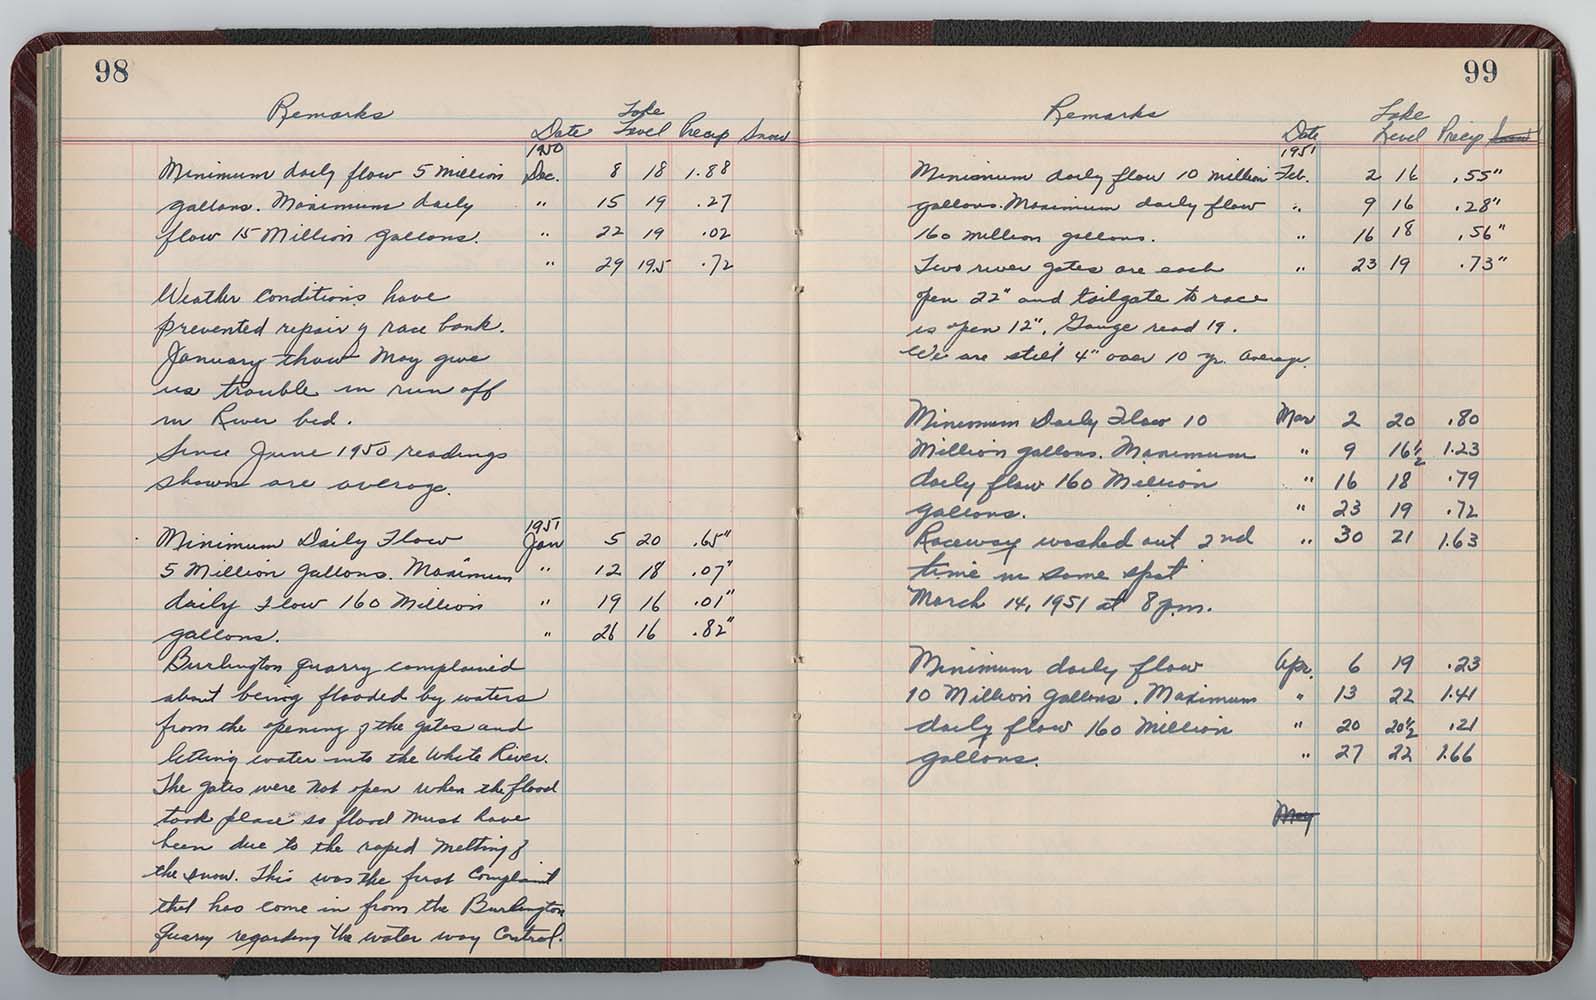 98
Remarks Date Lake Level Precip Snow
1950
Minimum daily flow 5 Million Dec. 8 18 1.88
gallons. Maximum daily " 15 19 .27
flow 15 Million gallons. " 22 19 .02
" 29 19.5 .72
Weather conditions have
prevented repair of race bank.
January thaw may give
us trouble in run off
in River bed.
Since June 1950 readings
shown are average.
1951
Minimum Daily Flow Jan 5 20 .65"
5 Million gallons. Maximum " 12 18 .07"
daily Flow 160 Million " 19 16 .01"
gallons. " 26 16 .82"
Burlington quarry complained
about being flooded by waters
from the opening of the gates and
letting water into the White River.
The gates were not open when the flood
took place so flood must have
been due to the raped melting of
the snow. This was the first complaint
that has come in from the Burlington
quarry regarding the water way Control.
99
Remarks Date Lake Level Precip Snow
1951
Minimum daily flow 10 million Feb. 2 16 .55"
gallons. Maximum daily flow " 9 16 .28"
160 million gallons. " 16 18 .56"
Two river gates are each " 23 19 .73"
open 22" and tailgate to race
is open 12". Gauge read 19.
We are still 4" over 10 yr. average.
Minimum Daily Flow 10 Mar 2 20 .80
Million gallons. Maximum " 9 16½ 1.23
daily flow 160 Million " 16 18 .79
gallons. " 23 19 .72
Raceway washed out 2nd " 30 21 1.63
time in same spot
March 14, 1951 at 8 p.m.
Minimum daily flow Apr. 6 19 .23
10 Million gallons. Maximum " 13 22 1.41
daily flow 160 Million " 20 20½ .21
gallons. " 27 22 1.66
May